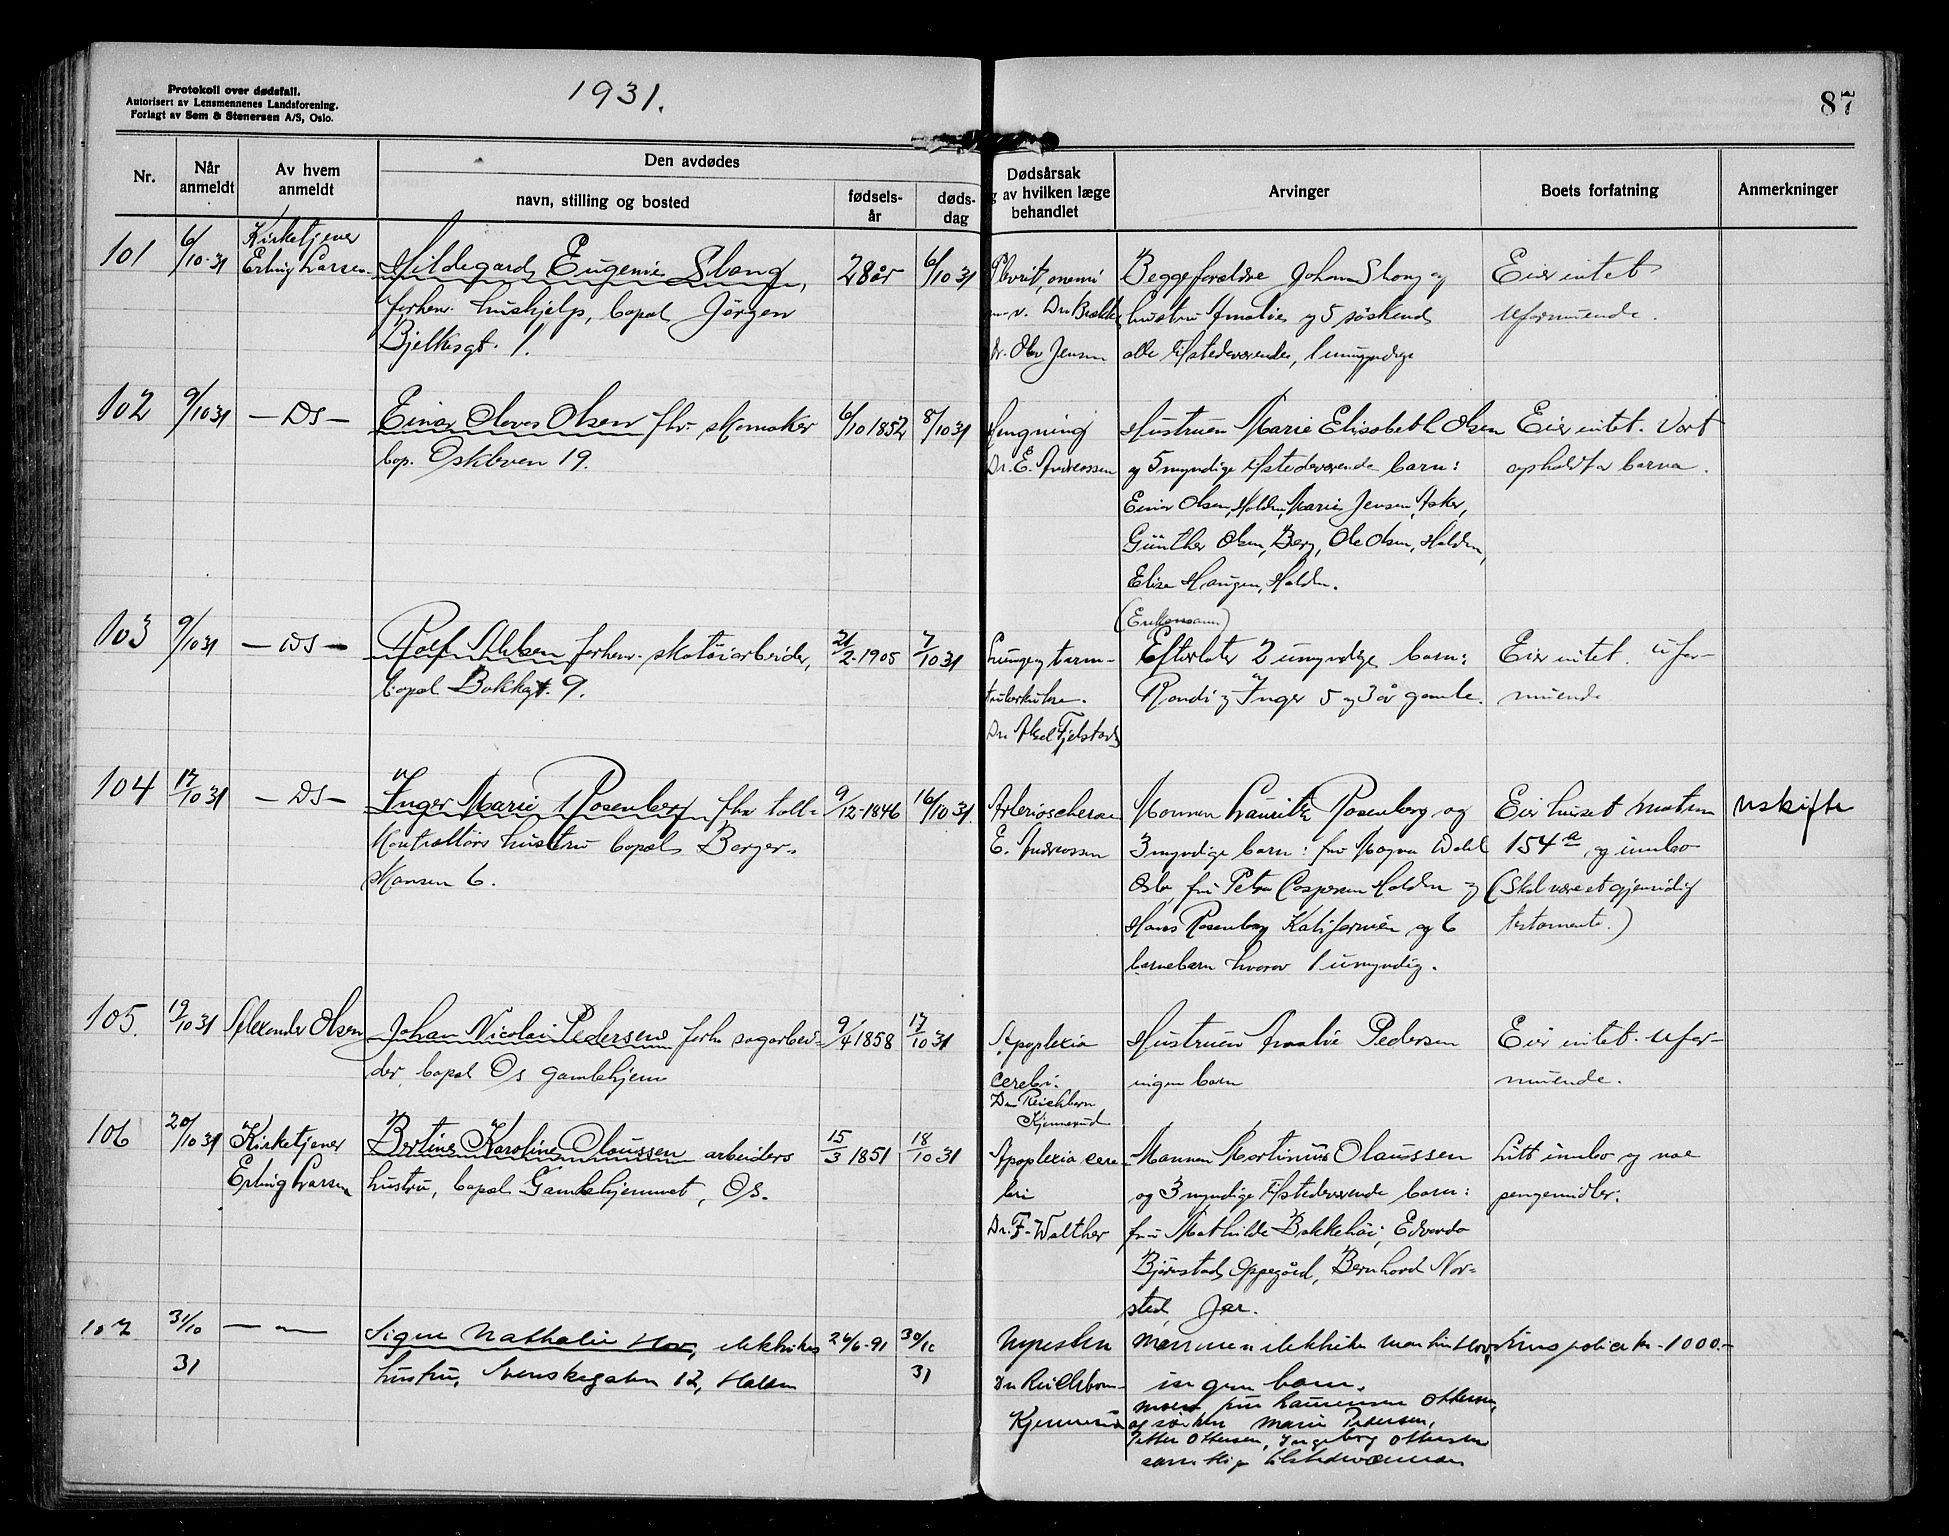 Protokoll over dødsfall.
Autorisert av Lensmennenes Landsforening.
Forlagt av Sem & Stenersen A/S, Oslo.
1931.
87
Nr.
Når anmeldt
Av hvem anmeldt
Den avdødes
navn, stilling og bosted
fødsels-år
døds-dag
Dødsårsak
og av hvilken læge
behandlet
Arvinger
Boets forfatning
Anmerkninger
101
6/10-31
Kirketjener
Erling Larsen
Hildegard Eugenie Stang,
forhenv. hushjelp, bopæl Jørgen
Bjelkesgt. 1.
28 år
6/10 31
Dr. Olav Jensen
Begge forældre Johan Stang og
hustru Amalie og 5 søskende
alle tilstedeværende, 1 umyndig
Eier intet
Uformuende.
102
9/10 31
— Ds —
Einar Olaves Olsen fhv. skomaker
bop. Oskleven 19.
6/10 1852
8/10 31
Hengning
Dr. E. Andreassen
Hustruen Marie Elisabeth Olsen
og 5 myndige tilstedeværende barn:
Einar Olsen, Halden, Marie Jensen, Asker,
Günther Olsen, Berg, Ole Olsen, Halden,
Elise Haugen, Halden.
Eier intet. Vært
ophold for barna.
103
9/10 31
— Ds —
Rolf Nilsen forhenv. skotøiarbeider,
bopæl Bakkegt. 9.
21/2-1905
7/10 31
Lunge og tarm-
tuberkulose.
Dr. Aksel Fjelstad
(Enkemann)
Efterlater 2 umyndige barn:
Randi og Inger 5 og 3 år gamle.
Eier intet. Ufor-
muende
104
17/10 31
— Ds —
Inger Marie Rosenberg fhv toll-
kontrollørs hustru bopæl Berger-
Hansen 6.
9/12-1846
16/10 31.
Arteriosclerose
E. Andreassen
Mannen Lauritz Rosenberg og
3 myndige barn: fru Magna Dahl
Oslo, fru Petra Caspersen Halden og
Hans Rosenberg Kalifornien og 6
barnebarn hvorav 1 umyndig.
Eier huset matrn
154 a og innbo
(Skal være et gjensidig
testamente.)
Uskifte
105.
19/10 31
Alexander Olsen
Johan Nicolai Pedersen forhv sagarbei-
der, bopæl Os gamlehjem
9/4 1858
17/10 31
Apoplexia
cerebri.
Dr. Reichborn
Kjennerud
Hustruen Amalie Pedersen
ingen barn
Eier intet. Ufor-
muende.
106
20/10 31
Kirketjener
Erling Larsen
Bertine Karoline Olaussen arbeiders
hustru, bopæl Gamlehjemmet, Os.
15/3 1851
18/10 31
Apoplexia cere-
bri
Dr. F. Walther
Mannen Martinius Olaussen
og 3 myndige tilstedeværende barn:
fru Mathilde Bakkehøi, Edvarda
Bjørnstad, Oppegård, Bernhard Nor-
sted, Jar.
Litt innbo og noe
pengemidler.
107
31/10 31
— " —
Signe Nathalie Hov, elektrikers
hustru, Svenskegaten 12, Halden
26/6-91
30/10 31
Dr Reichborn-
Kjennerud
Mannen elektriker Martin Hov,
ingen barn.
mor fru Laurense Ottersen,
og søsken Marie Pedersen,
Petter Ottersen, Ingeborg Ottersen
samtlige tilstedeværende
Livspolice kr. 1000.-